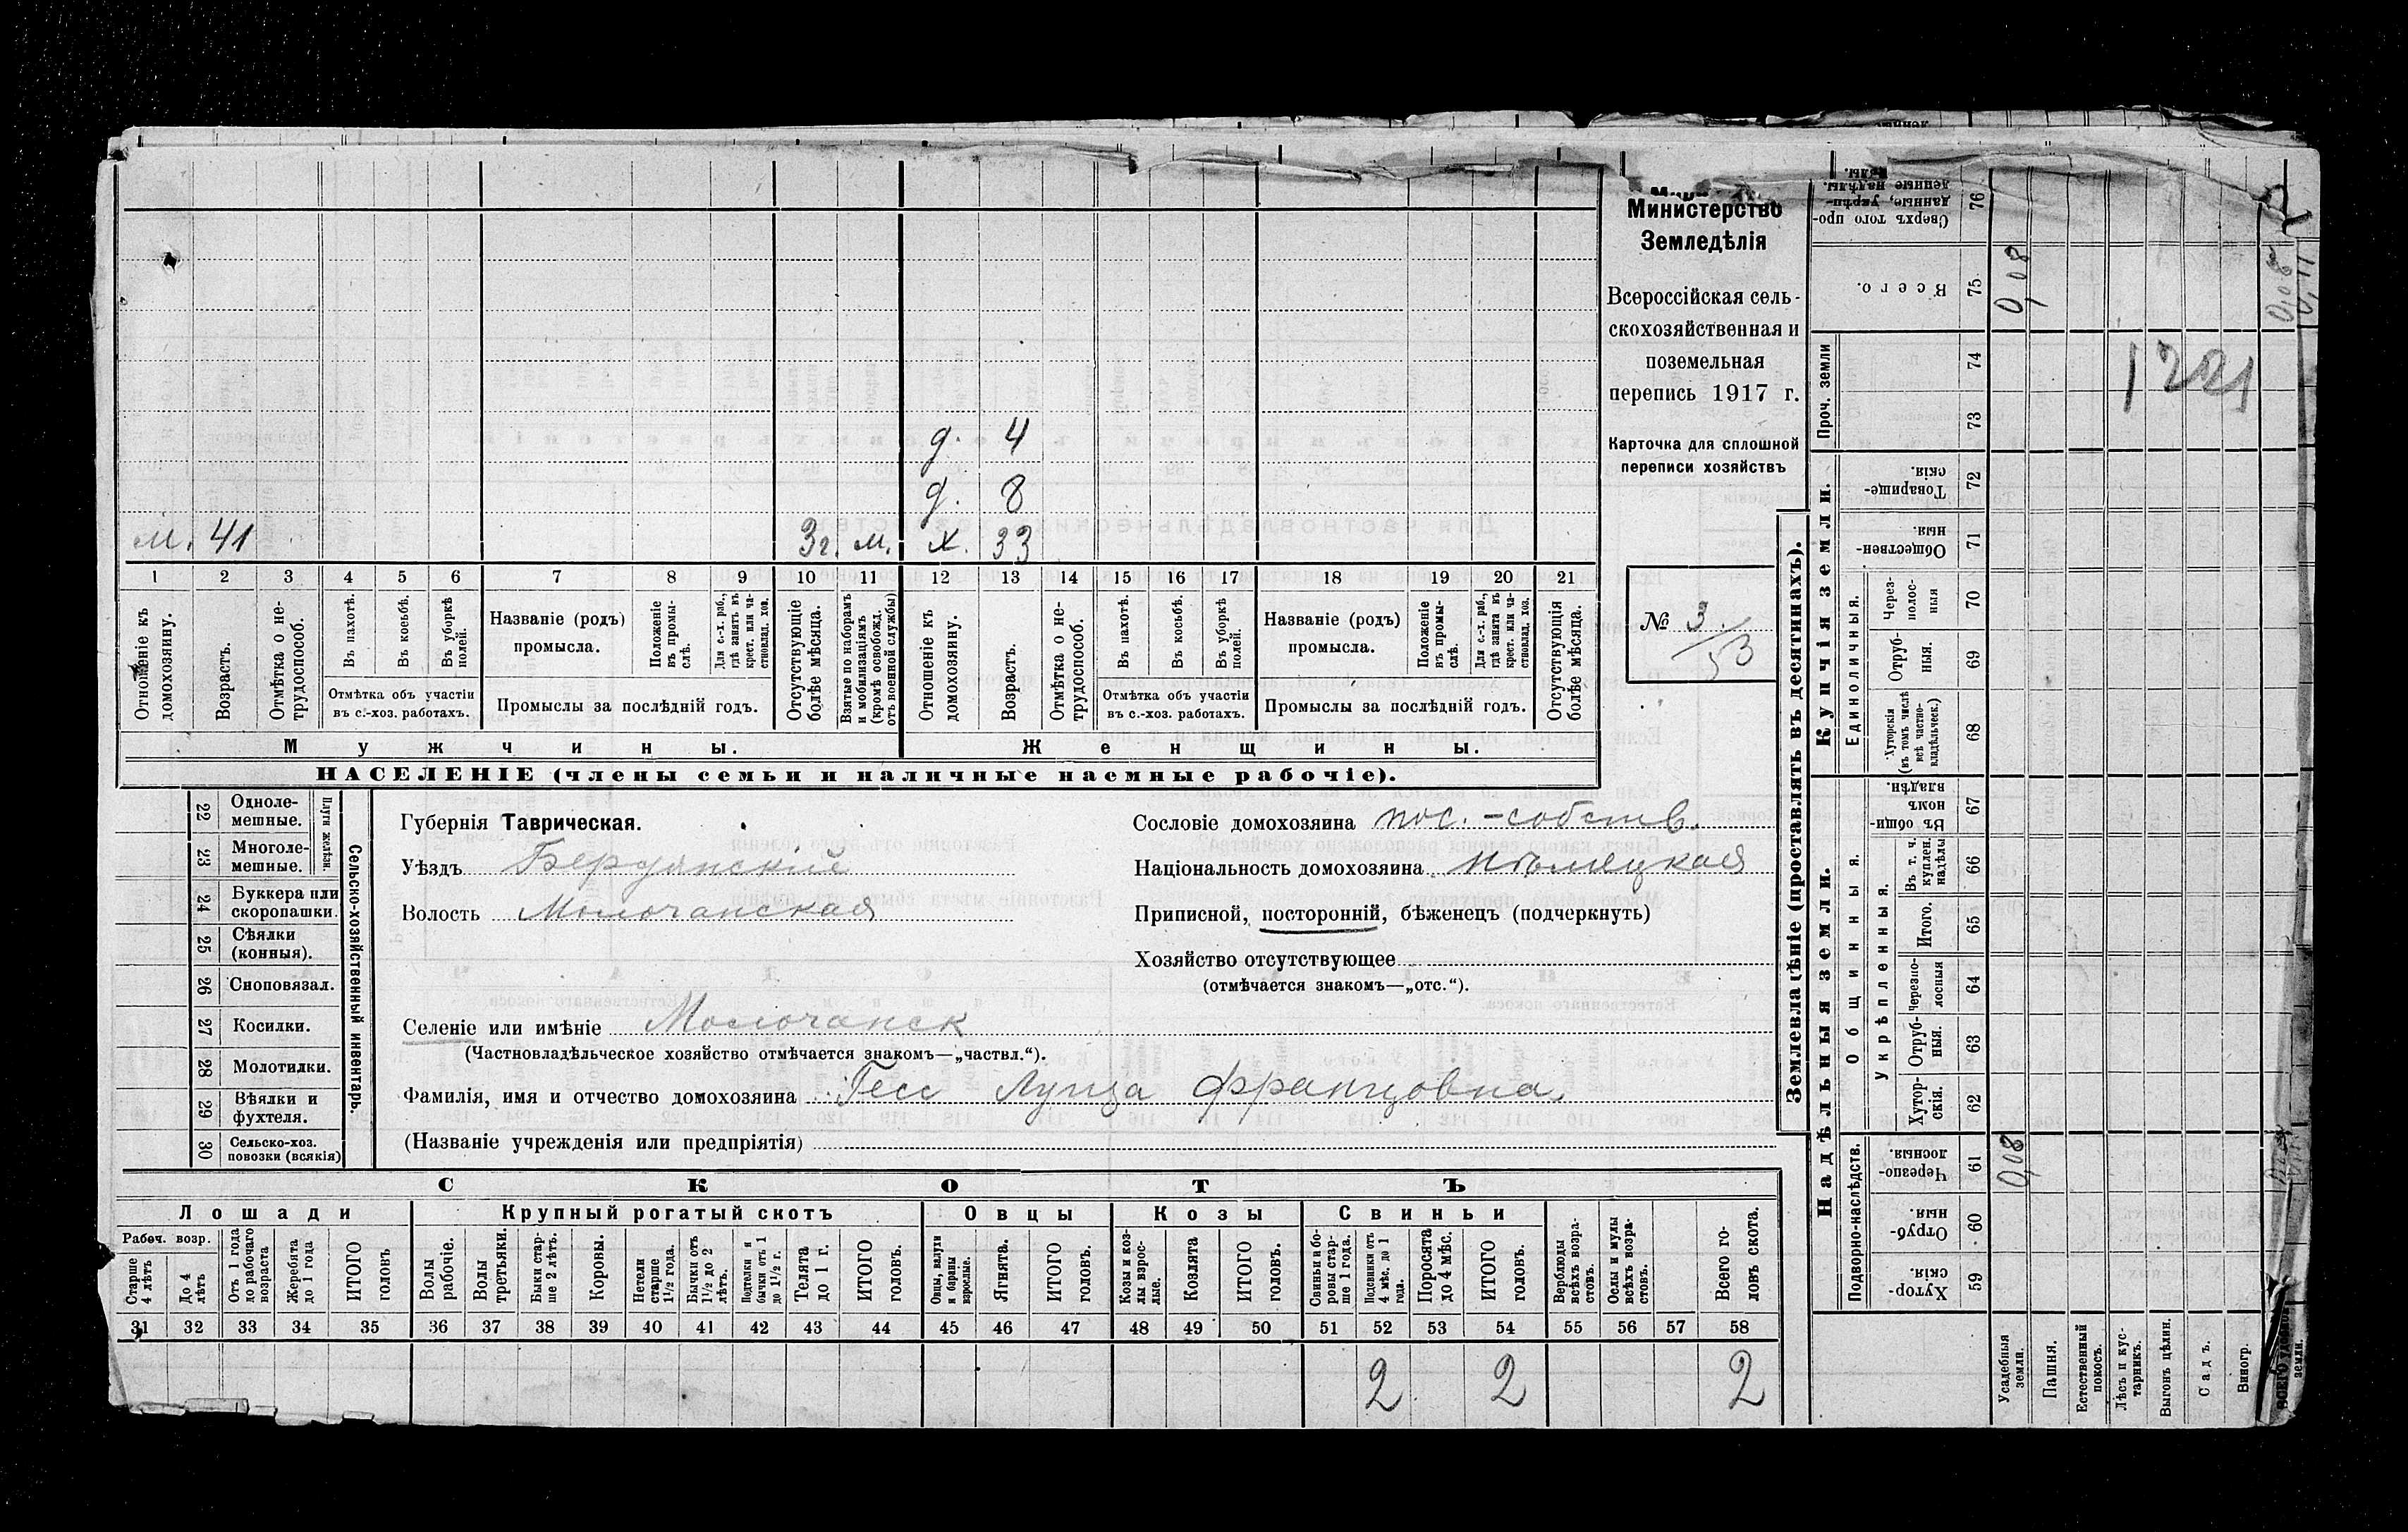 Министерство
Земледѣлія
Всероссійская сель-
скохозяйственная и
поземельная
перепись 1917 г.
Карточка для сплошной
переписи хозяйствъ
№ 3.
53
д. 4
д. 8
м. 41 3 г. м. х. 33
1 2 3 4 5 6 7 8 9 10 11 12 13 14 15 16 17 18 19 20 21
Отношеніе къ домохозяину.
Возрастъ.
Отмѣтка о не-трудоспособ.
Въ пахотѣ.
Въ косьбѣ.
Въ уборкѣ полей.
Отмѣтка объ участіи
въ с.-хоз. работахъ.
Названіе (родъ)
промысла.
Положеніе въ промы-слѣ.
Для с.-х. раб., гдѣ занятъ въ крест. или ча-стновлад. хоз.
Промыслы за послѣдній годъ.
Отсутствующіе болѣе мѣсяца.
Взятые по наборамъ и мобилизаціямъ (кромѣ освобожд. отъ военной службы)
Отношеніе къ домохозяину.
Возрастъ.
Отмѣтка о не-трудоспособ.
Въ пахотѣ.
Въ косьбѣ.
Въ уборкѣ полей.
Отмѣтка объ участіи
въ с.-хоз. работахъ.
Названіе (родъ)
промысла.
Положеніе въ промы-слѣ.
Для с.-х. раб., гдѣ занята въ крест. или ча-стновлад. хоз.
Промыслы за послѣдній годъ.
Отсутствующія болѣе мѣсяца.
Мужчины. Женщины.
НАСЕЛЕНІЕ (члены семьи и наличные наемные рабочіе).
22 Одноле-мешные.
23 Многоле-мешные.
Плуги желѣзн.
24 Буккера или скоропашки.
25 Сѣялки (конныя).
26 Сноповязал.
27 Косилки.
28 Молотилки.
29 Вѣялки и фухтеля.
30 Сельско-хоз. повозки (всякія)
Сельско-хозяйственный инвентарь.
Губернія Таврическая.
Уѣздъ Бердянскій
Волость Молочанская
Селеніе или имѣніе Молочанск
(Частновладѣльческое хозяйство отмѣчается знакомъ—„частвл.“).
Фамилія, имя и отчество домохозяина Гесс Луиза Францовна
(Названіе учрежденія или предпріятія)
Сословіе домохозяина пос.-собств.
Національность домохозяина нѣмецкая
Приписной, посторонній, бѣженецъ (подчеркнуть)
Хозяйство отсутствующее
(отмѣчается знакомъ—„отс.“).
СКОТЪ
Лошади Крупный рогатый скотъ Овцы Козы Свиньи
Рабоч. возр.
Старше 4 лѣтъ
До 4 лѣтъ
Отъ 1 года до рабочаго возраста
Жеребята до 1 года
ИТОГО головъ
Волы рабочіе.
Волы третьяки.
Быки стар-ше 2 лѣтъ.
Коровы.
Нетели старше 1½ года.
Бычки отъ 1½ до 2 лѣтъ.
Подтелки и бычки отъ 1 до 1½ г.
Телята до 1 г.
ИТОГО головъ.
Овцы, валухи и бараны взрослые.
Ягнята.
ИТОГО головъ.
Козы и коз-лы взрос-лые.
Козлята
ИТОГО головъ.
Свиньи и бо-ровы стар-ше 1 года.
Подсвинки отъ 4 мѣс. до 1 года.
Поросята до 4 мѣс.
ИТОГО головъ.
Верблюды всѣхъ возра-стовъ.
Ослы и мулы всѣхъ возра-стовъ.
Всего го-ловъ скота.
31 32 33 34 35 36 37 38 39 40 41 42 43 44 45 46 47 48 49 50 51 52 53 54 55 56 57 58
2 2 2
Землевладѣніе (проставлять въ десятинахъ).
Купчія земли.
Надѣльныя земли.
Сверхъ того про-данные, укрѣп-ленные надѣлы. 76
Всего. 75 0,08 0,08
Проч. земли 74 73
1221
Товарище-скія. 72
Обществен-ныя 71
Единоличныя.
Через-полос-ныя 70
Отруб-ныя. 69
Хуторскія (въ томъ числѣ всѣ частно-владѣльческ.) 68
Общинныя.
Въ общи-номъ владѣн. 67
Укрѣпленныя.
Въ т. ч. куплен. надѣлы 66
Итого. 65
Черезпо-лосныя 64
Отруб-ныя. 63
Хутор-скія. 62
Подворно-наслѣдств.
Черезпо-лосныя. 61 0,08
Отруб-ныя. 60
Хутор-скія. 59
Усадебныя земли.
Пашня.
Естественный покосъ.
Лѣсъ и кус-тарникъ.
Выгонъ цѣлин.
Садъ.
Виногр.